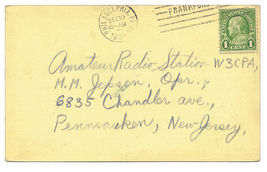 PHILADELPHIA, PA.
DEC 10
10-AM
FRANKFORD
1 CENT
Amateur Radio Station W3CPA,
M.M. Jepson, Opr.,
6835 Chandler ave.,
Pennsauken, New Jersey,